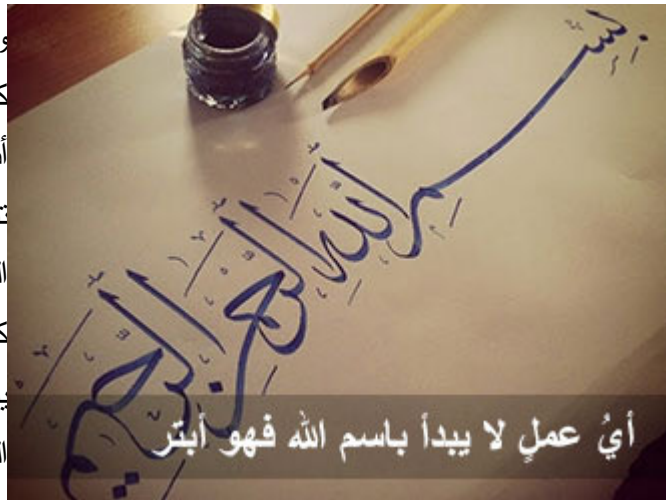 بِسْمِ اللهِ الرَّحْمٰنِ الرَّحِيمِ
أيُ عملٍ لا يبدأ باسم الله فهو أبتر